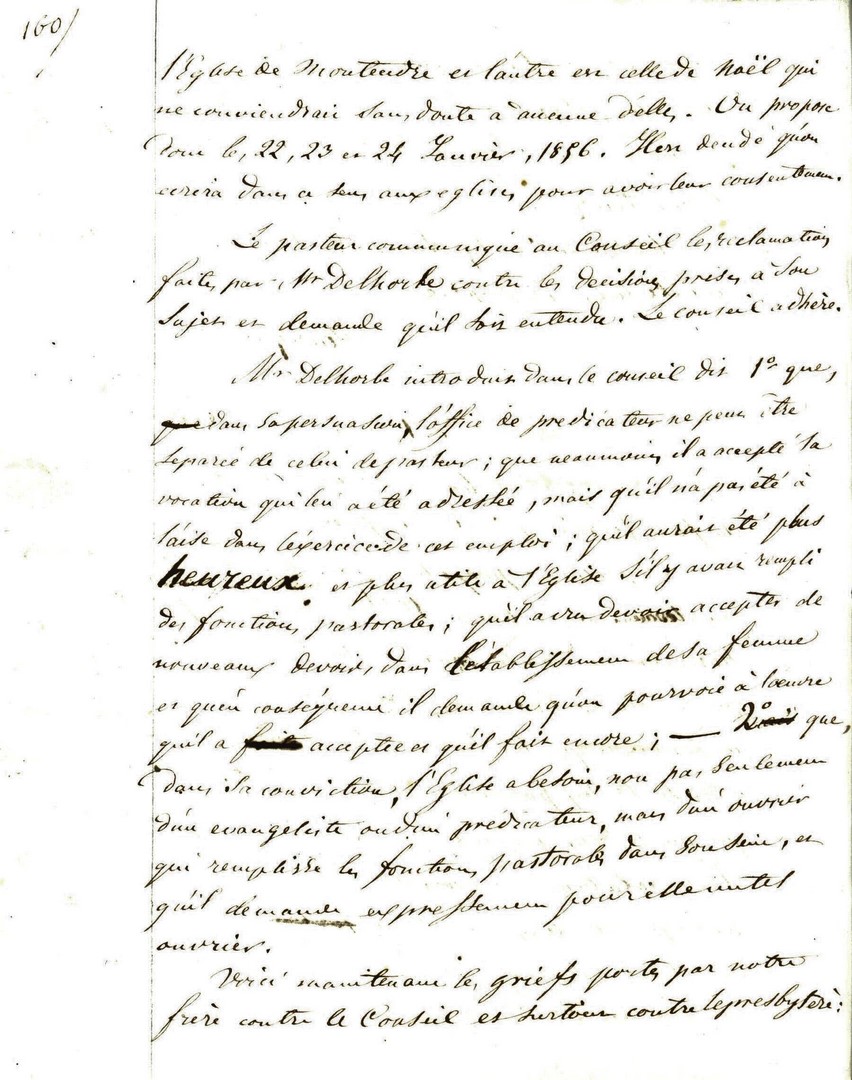 160/
l'Eglise de Montendre et l'autre est celle de Noël qui
ne conviendrait sans doute à aucune d'elles. On propose
donc les, 22, 23 et 24 Janvier, 1856. Il est décidé qu'on
écrira dans ce sens aux eglises pour avoir leur consentement.
Le pasteur communique au Conseil les réclamations
faites par Mr Delhorbe contre les decisions prises à son
sujet et demande qu'il soit entendu. Le conseil adhère.
Mr Delhorbe introduit dans le conseil dit 1o que,
que dans sa persuasion, l'office de predicateur ne peut être
separée de celui de pasteur; que neaumoins il a accepté la
vocation qui lui a été adressée, mais qu'il n'a pas été à
l'aise dans l'exercice de cet emploi; qu'il aurait été plus
heureux et plus utile à l'Eglise s'il y avait rempli
des fonctions pastorales; qu'il a vu devoir accepter de
nouveaux devoirs dans l'établissement de sa femme
et qu'en conséquence il demande qu'on pourvoie à l'oeuvre
qu'il a faite acceptée et qu'il fait encore; — 2o que,
dans sa conviction, l'Eglise a besoin, non pas seulement
d'un evangeliste ou d'un prédicateur, mais d'un ouvrier
qui remplisse les fonctions pastorales dans son sein, et
qu'il demande expressement pour elle un tel
ouvrier.
Voici maintenant les griefs portés par notre
frère contre le Conseil et surtout contre le presbytère: